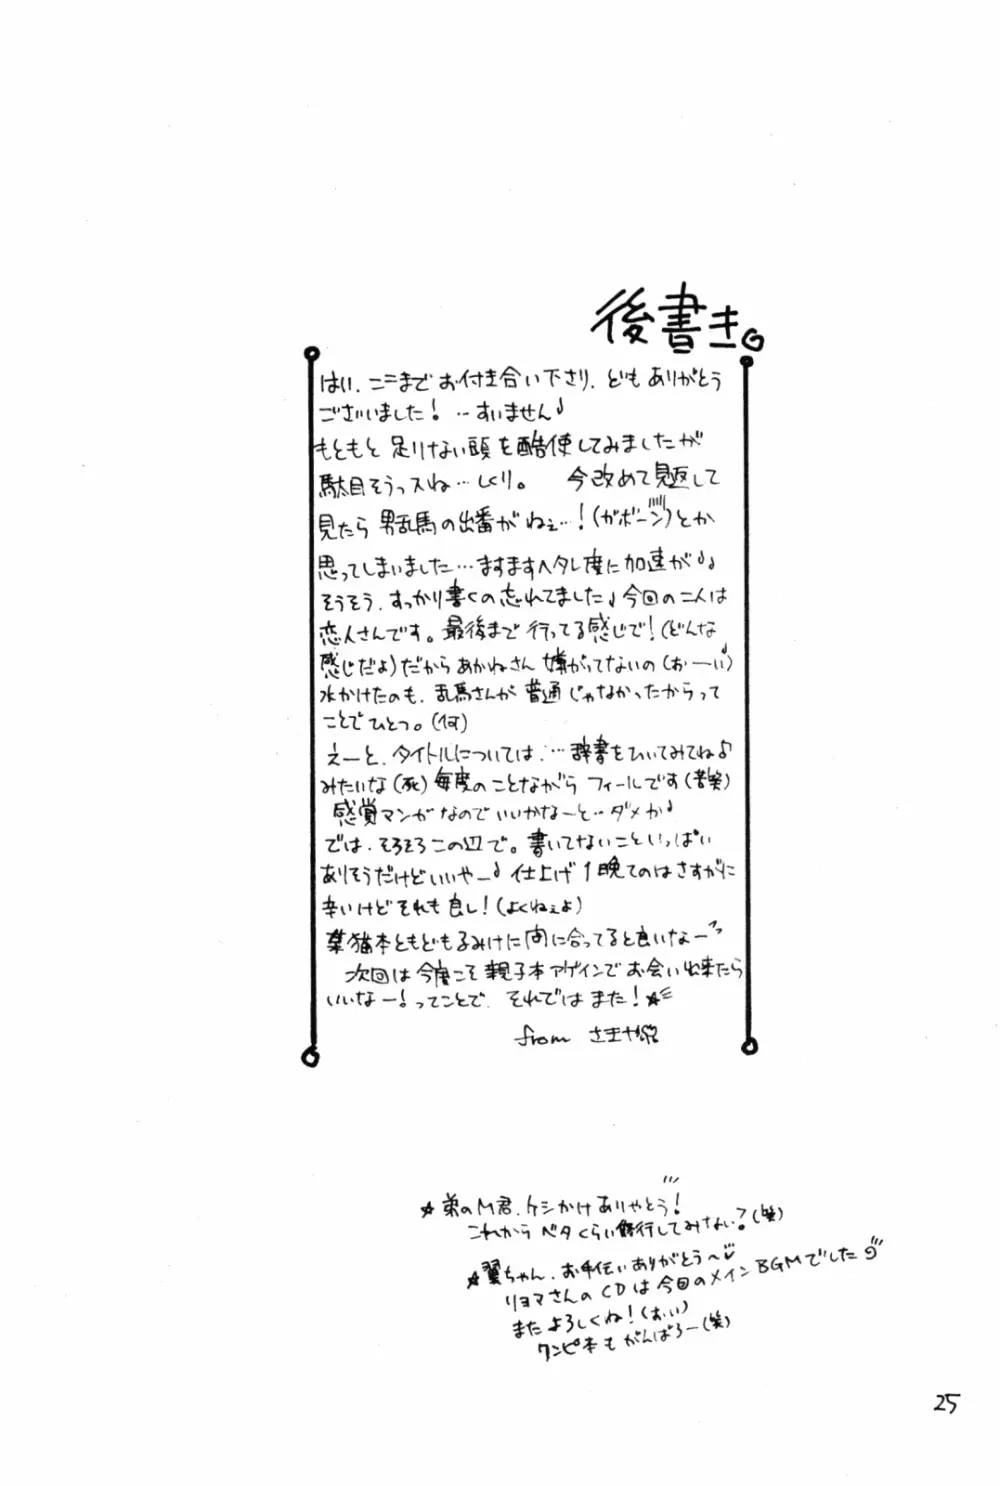 後書き。
はい、ここまでお付き合い下さり、どもありがとう
ございました! …すいません♪
もともと足りない頭を酷使してみましたが
駄目そうっスね…しくり。 今改めて見返して
見たら男乱馬の出番がねぇ…!(ガボーン)とか
思ってしまいました…ますますヘタレ度に加速が♪
そうそう、すっかり書くの忘れてました♪今回の二人は
恋人さんです。最後まで行ってる感じで!(どんな
感じだよ)だからあかねさん嫌がってないの(おーい)
水かけたのも、乱馬さんが普通じゃなかったからって
ことでひとつ。(何)
えーと、タイトルについては…辞書をひいてみてね♪
みたいな(死)毎度のことながらフィールです(苦笑)
感覚マンガなのでいいかなーと…ダメか♪
では、そろそろこの辺で。書いてないこといっぱい
ありそうだけどいいやー♪仕上げ1晩てのはさすがに
辛いけどそれも良し!(よくねぇよ)
葉猫本ともどもるみけに間に合ってると良いなーっ
次回は今度こそ親子本アゲインでお会い出来たら
いいなー!ってことで、それではまた!★
from さまや
★弟のM君、ケシかけありやとう!
これからベタくらい修行してみない?(笑)
★翼ちゃん、お手伝いありがとう〜♥
リョマさんのCDは今回のメインBGMでした
またよろしくね!(おい)
ワンピ本もがんばろー(笑)
25